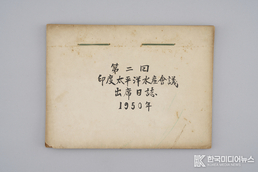 第二回
印度太平洋水産會議
出席日誌
1950年
한국미디어뉴스